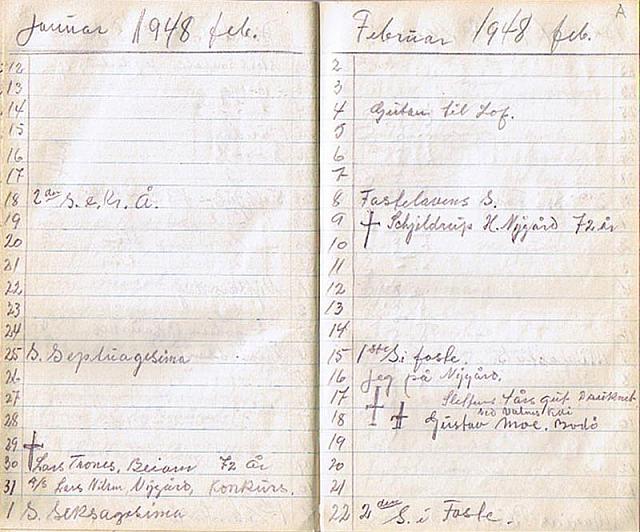 Januar 1948 feb.
12
13
14
15
16
17
18 2den S. e. Kr. Å.
19
20
21
22
23
24
25 S. Septuagesima
26
27
28
29
30 † Lars Trones, Beiarn 72 år
31 A/S Lars Nilsen Nygård, Konkurs.
1 S. Seksagesima
Februar 1948 feb.
A
2
3
4 Gutan til Lof.
5
6
7
8 Fastelavens S.
9 † Schjeldrup H. Nygård 72 år
10
11
12
13
14
15 1ste S. i faste.
16 Jeg på Nygård.
17 † Steffens års gut druknet
ved Valnes kai
18 † Gustav Moe. Bodø
19
20
21
22 2den S. i Faste.